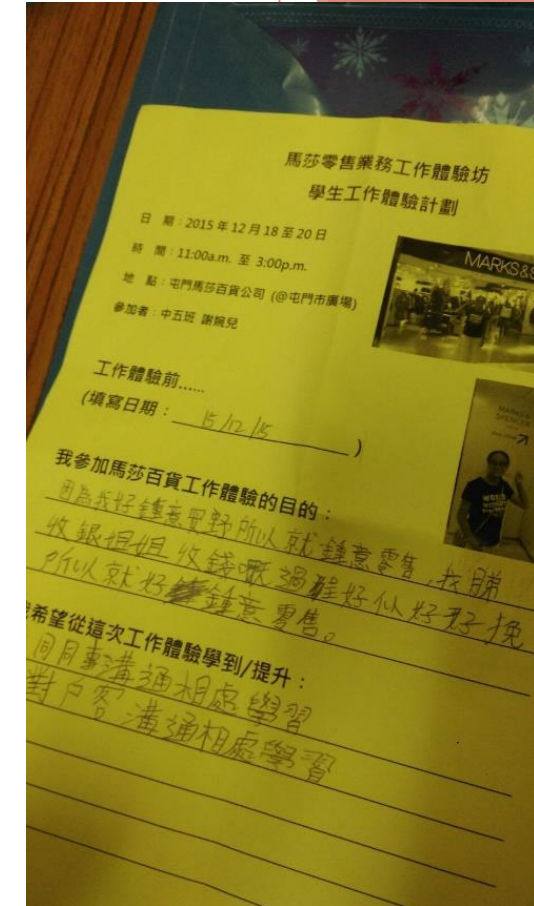 馬莎零售業務工作體驗坊
學生工作體驗計劃
日 期：2015 年 12 月 18 至 20 日
時 間：11:00a.m. 至 3:00p.m.
地 點：屯門馬莎百貨公司 (@屯門市廣場)
參加者：中五班 謝婉兒
MARKS&S
工作體驗前......
(填寫日期： 15/12/15 )
MARKS&
SPENCER
我參加馬莎百貨工作體驗的目的：
因為我好鍾意買野所以就鍾意零售，我睇
收銀姐姐收錢嘅過程好似好好
所以就好鍾意零售。
希望從這次工作體驗學到/提升：
同同事溝通相處學習
對戶客溝通相處學習